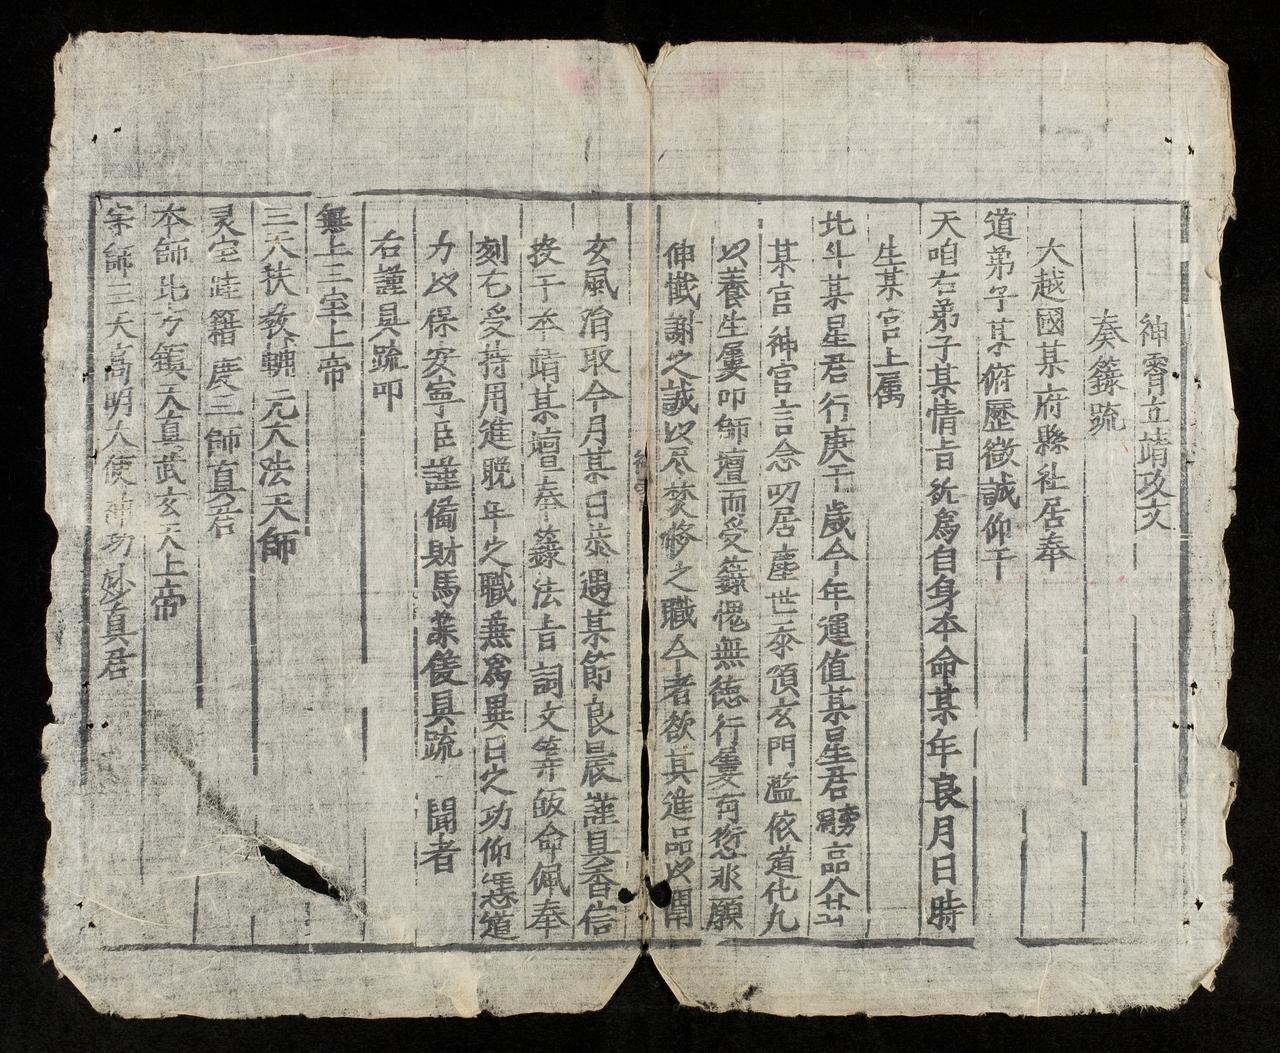 神霄立靖攻文
奏籙疏
大越國某府縣社居奉
道弟子某俯歷微誠仰干
天咱右弟子某情旨抌爲自身本命某年良月日時
生某宫上属
北斗某星君行庚干歲今年運值某星君
某宫神宫言念叨居塵世忝預玄門濫依道化九
以養生屢叩師壇而受籙愧無德行屢有愆永願
伸懺謝之誠以尽焚修之職今者欲其進品以開
玄風涓取今月某日恭遇某節良晨謹具香信
投于本靖某壇奉籙法旨詞文等皈命佩奉
刻石受持用進晚年之職兼爲異日之功仰憑道
力以保安寧臣謹備財馬業儀具疏 聞者
右謹具疏叩
無上三宝上帝
三天扶教輔元大法天師
灵宝 籍度三師真君
本師北方鎮天真武玄天上帝
宗師三天高明大使神功妙真君